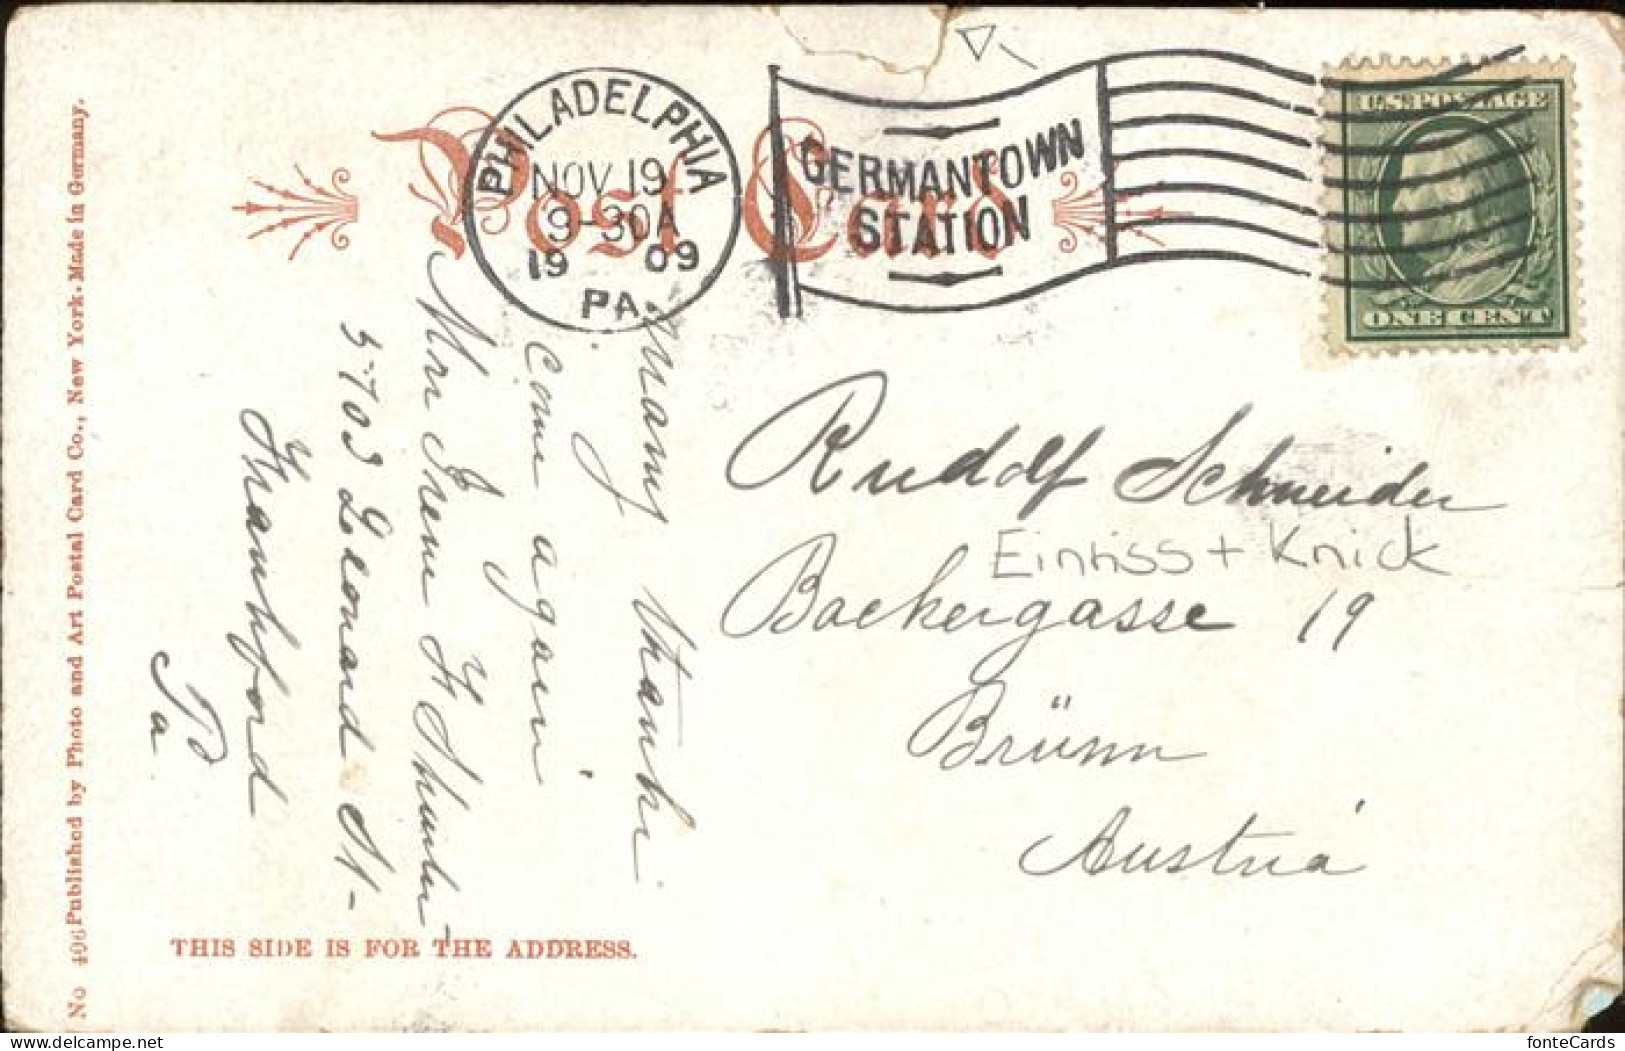 Post Card
PHILADELPHIA
NOV 19
9-30A
1909
PA.
GERMANTOWN
STATION
U.S. POSTAGE
ONE CENT
Many thanks
Come again
Mrs Irene H
5703 Leonard St-
Pa
Rudolf Schneider
Einriss + Knick
Backergasse 19
Brünn
Austria
THIS SIDE IS FOR THE ADDRESS.
No 496 Published by Photo and Art Postal Card Co., New York. Made in Germany.
delcampe.net
fonteCards